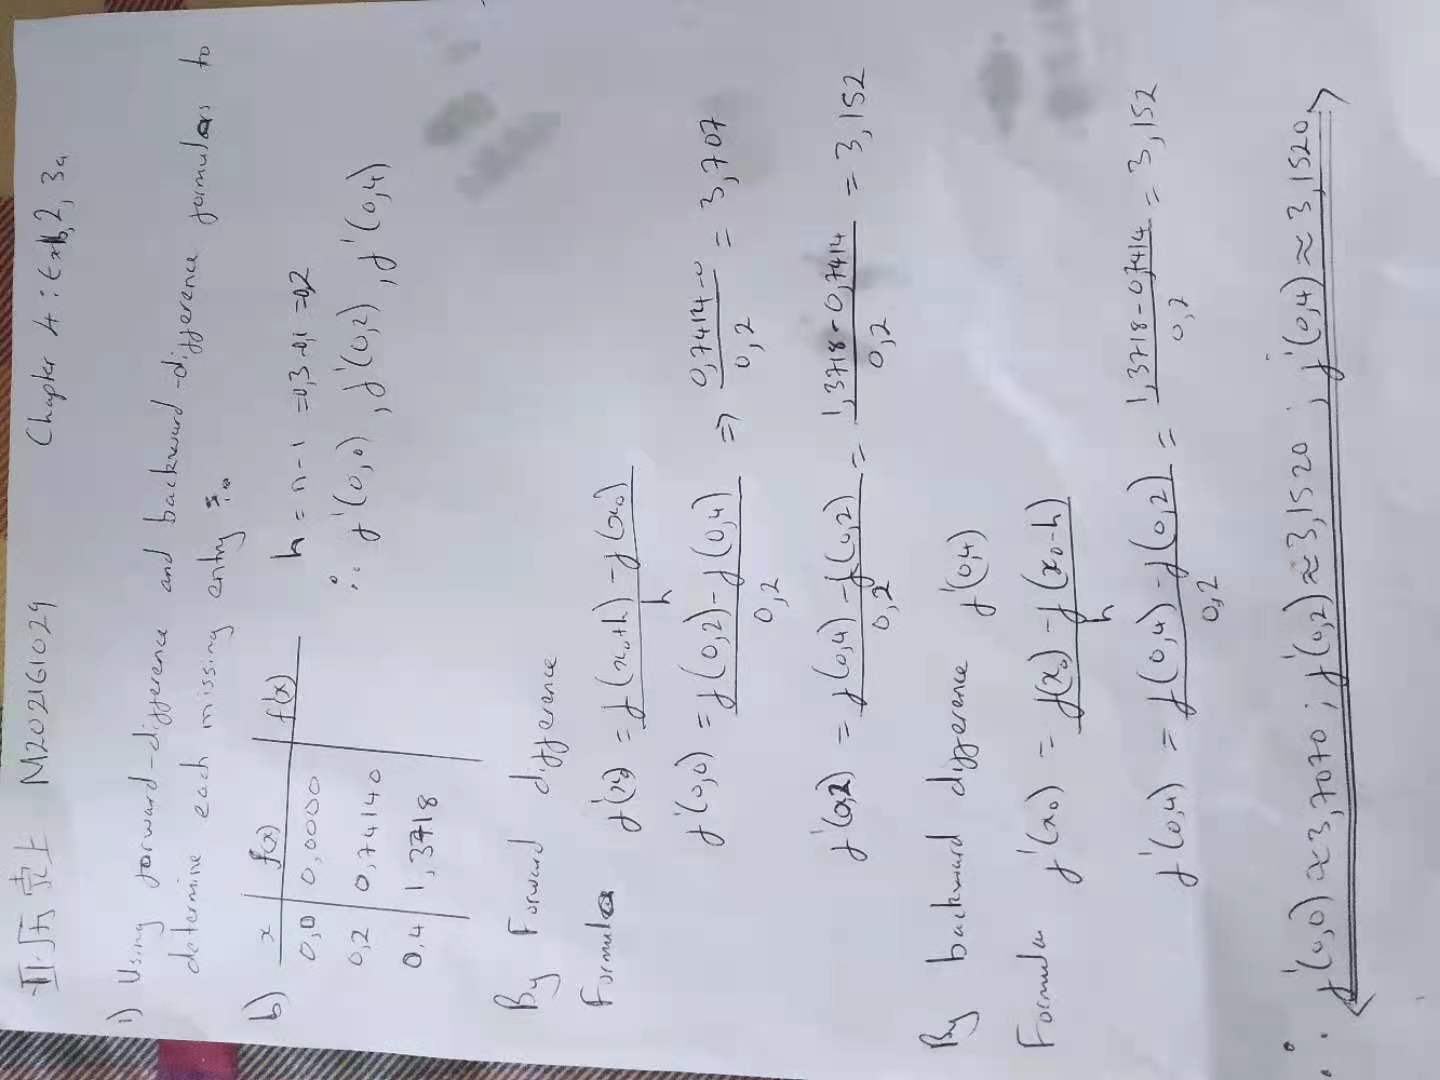 亚历克上 M202161029 Chapter 4: Ex1b, 2, 3a
1) Using forward-difference and backward-difference formulas to
determine each missing entry
b)
x | f(x) | f'(x)
0,0 | 0,0000
0,2 | 0,74140
0,4 | 1,3718
h = n-1 = 0,3-0,1 = 0,2
∴ f'(0,0), f'(0,2), f'(0,4)
By Forward difference
Formula f'(x₀) = f(x₀+h) - f(x₀) / h
f'(0,0) = f(0,2) - f(0,4) / 0,2 ⇒ 0,7414-0 / 0,2 = 3,707
f'(0,2) = f(0,4) - f(0,2) / 0,2 = 1,3718-0,7414 / 0,2 = 3,152
By backward difference f'(0,4)
Formula f'(x₀) = f(x₀) - f(x₀-h) / h
f'(0,4) = f(0,4) - f(0,2) / 0,2 = 1,3718-0,7414 / 0,2 = 3,152
∴ f'(0,0) ≈ 3,7070 ; f'(0,2) ≈ 3,1520 ; f'(0,4) ≈ 3,1520